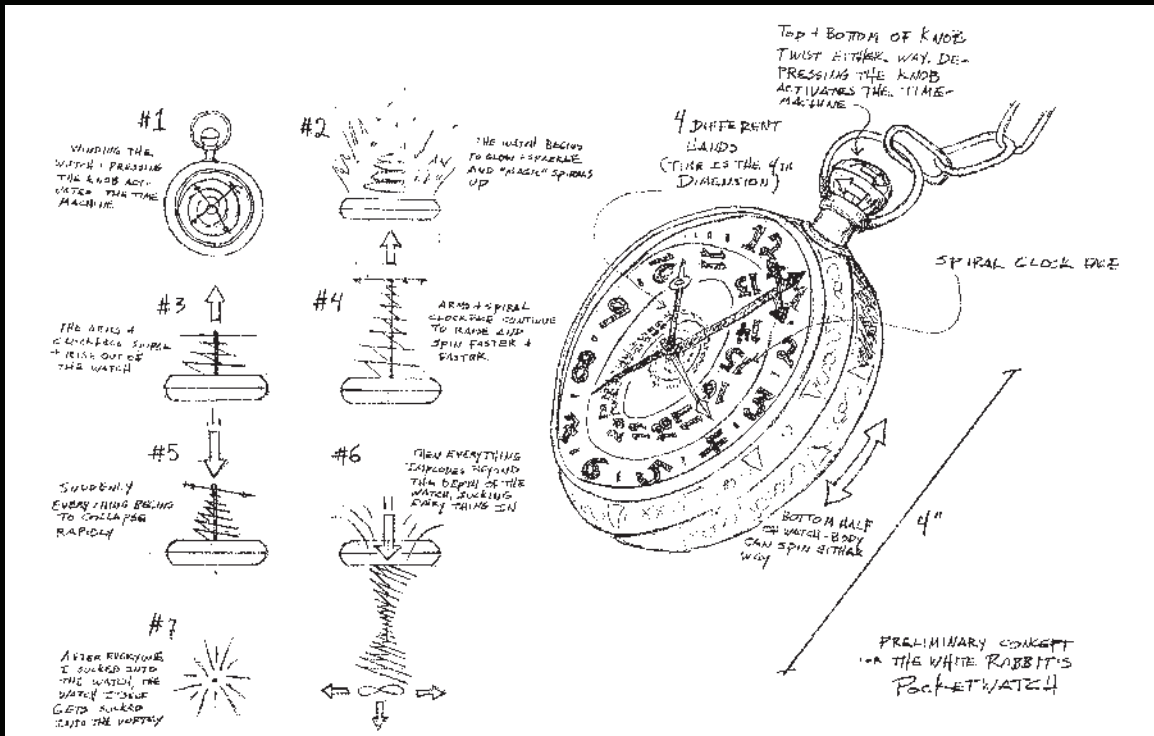 #1
WINDING THE
WATCH + PRESSING
THE KNOB ACTI-
VATES THE TIME
MACHINE
#2
THE WATCH BEGINS
TO GLOW + SPARKLE
AND "MAGIC" SPIRALS
UP
#3
THE ARMS +
CLOCKFACE SPIRAL
+ RISE OUT OF
THE WATCH
#4
ARMS + SPIRAL
CLOCKFACE CONTINUE
TO RAISE AND
SPIN FASTER +
FASTER
#5
SUDDENLY
EVERYTHING BEGINS
TO COLLAPSE
RAPIDLY
#6
THEN EVERYTHING
IMPLODES BEYOND
THE DEPTH OF THE
WATCH, SUCKING
EVERY THING IN
#7
AFTER EVERYONE
I SUCKED INTO
THE WATCH, THE
WATCH ITSELF
GETS SUCKED
INTO THE VORTEX
TOP + BOTTOM OF KNOB
TWIST EITHER WAY. DE-
PRESSING THE KNOB
ACTIVATES THE TIME-
MACHINE
4 DIFFERENT
HANDS
(TIME IS THE 4TH
DIMENSION)
SPIRAL CLOCK FACE
12
13
14
15
16
17
18
2
3
4
5
6
8
9
11
BOTTOM HALF
OF WATCH-BODY
CAN SPIN EITHER
WAY
4"
PRELIMINARY CONCEPT
FOR THE WHITE RABBIT'S
POCKETWATCH